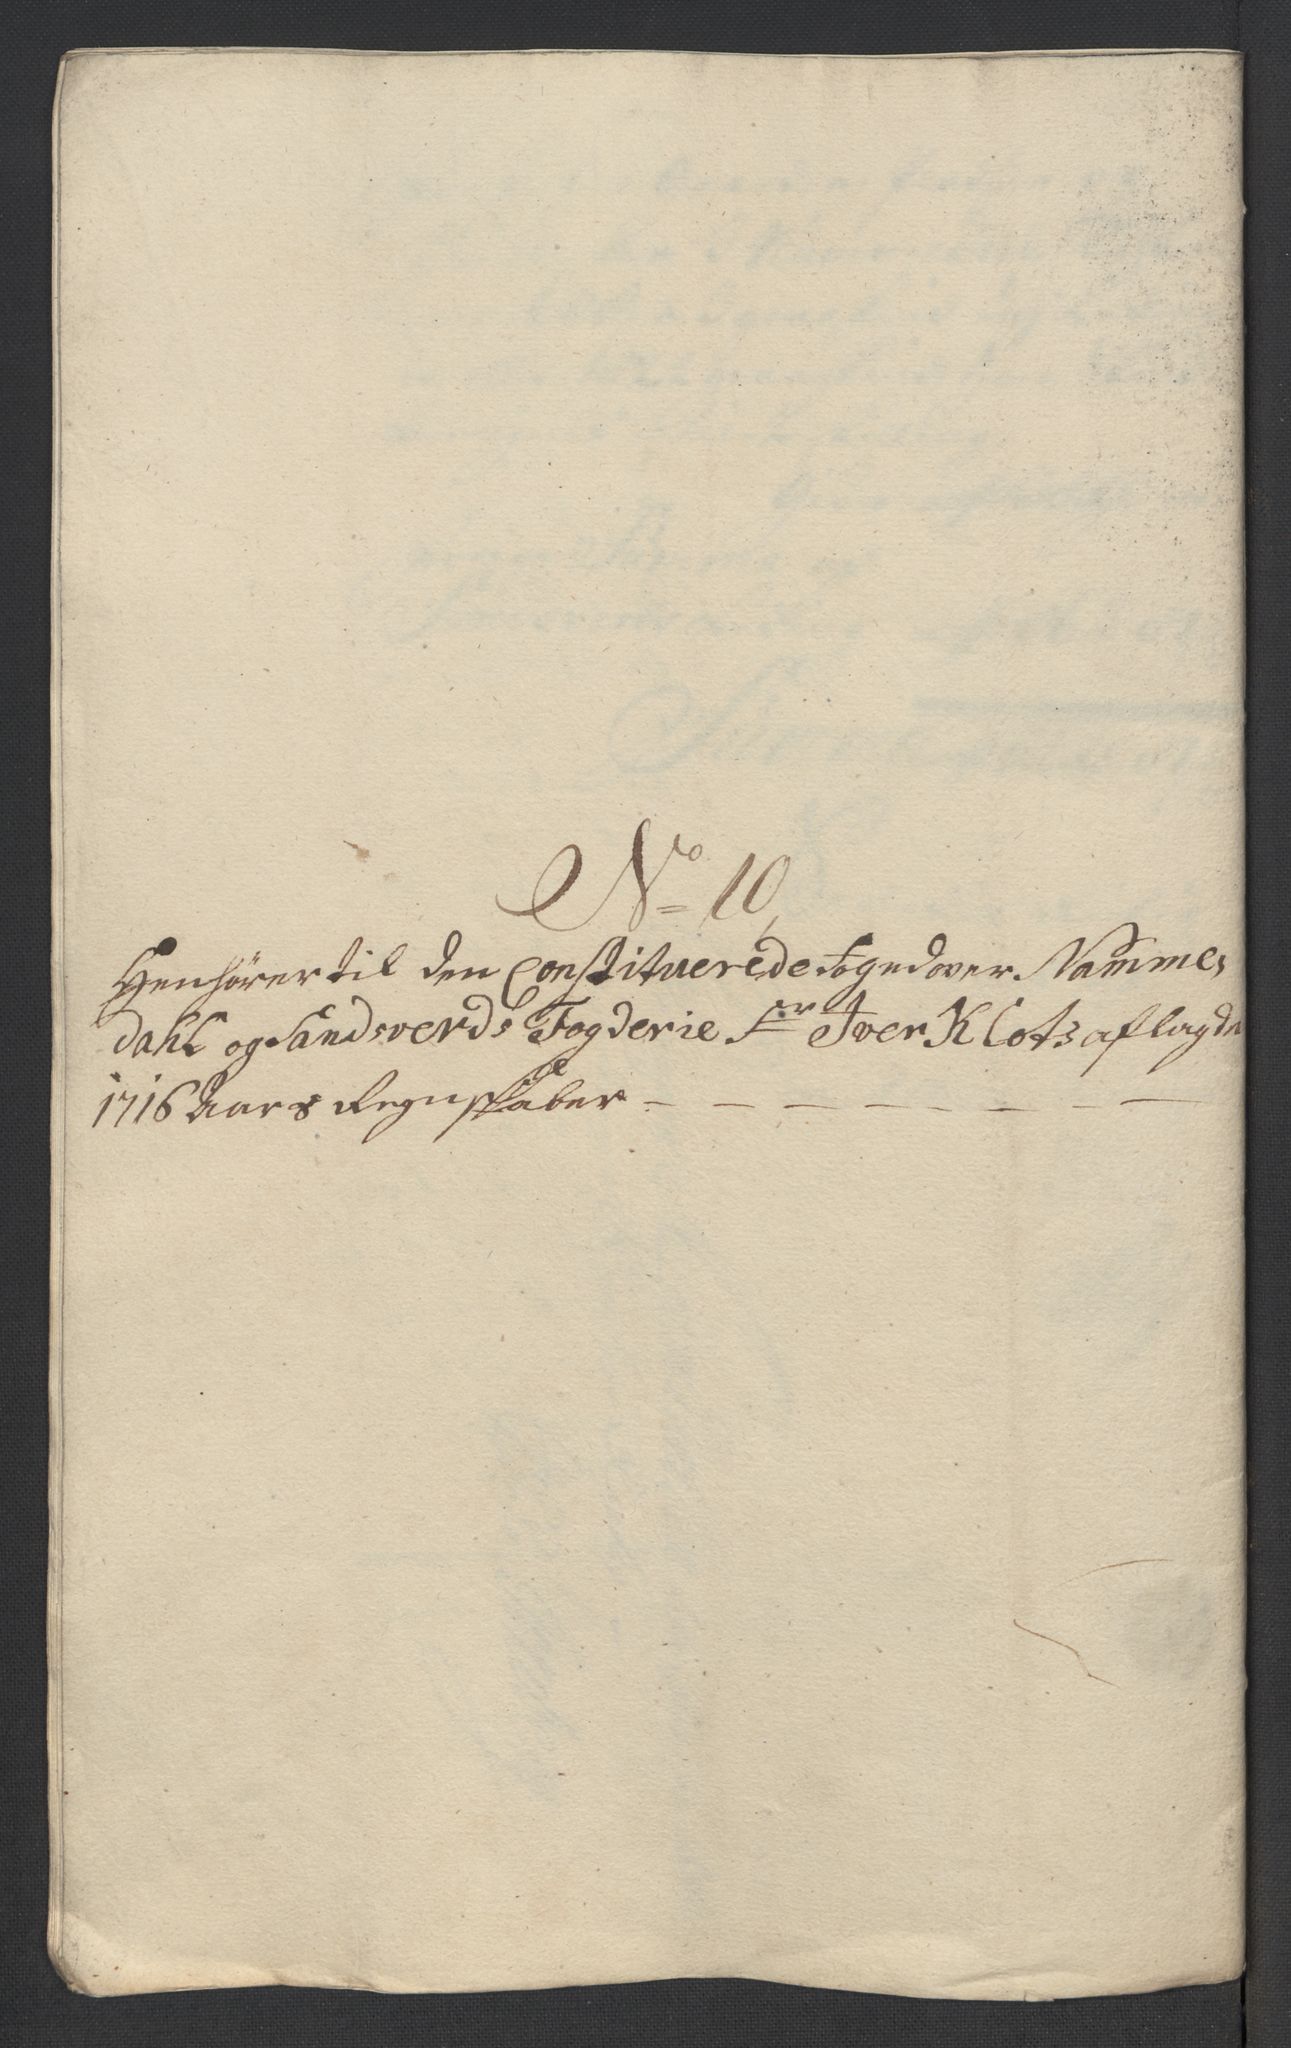 No 10,
Henhører til den Constituerede Foged over Nømme,
dahl og Sandsverds Fogderie Sr Iver Klotz aflagde
1716 Aars Regnskaber